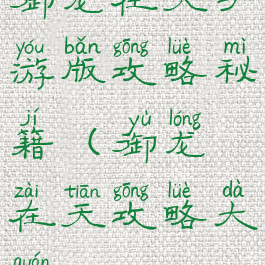 御龙在天手
yóu bǎn gōng lüè mì
游版攻略秘
jí yù lóng
籍（御龙
zài tiān gōng lüè dà
在天攻略大
quán